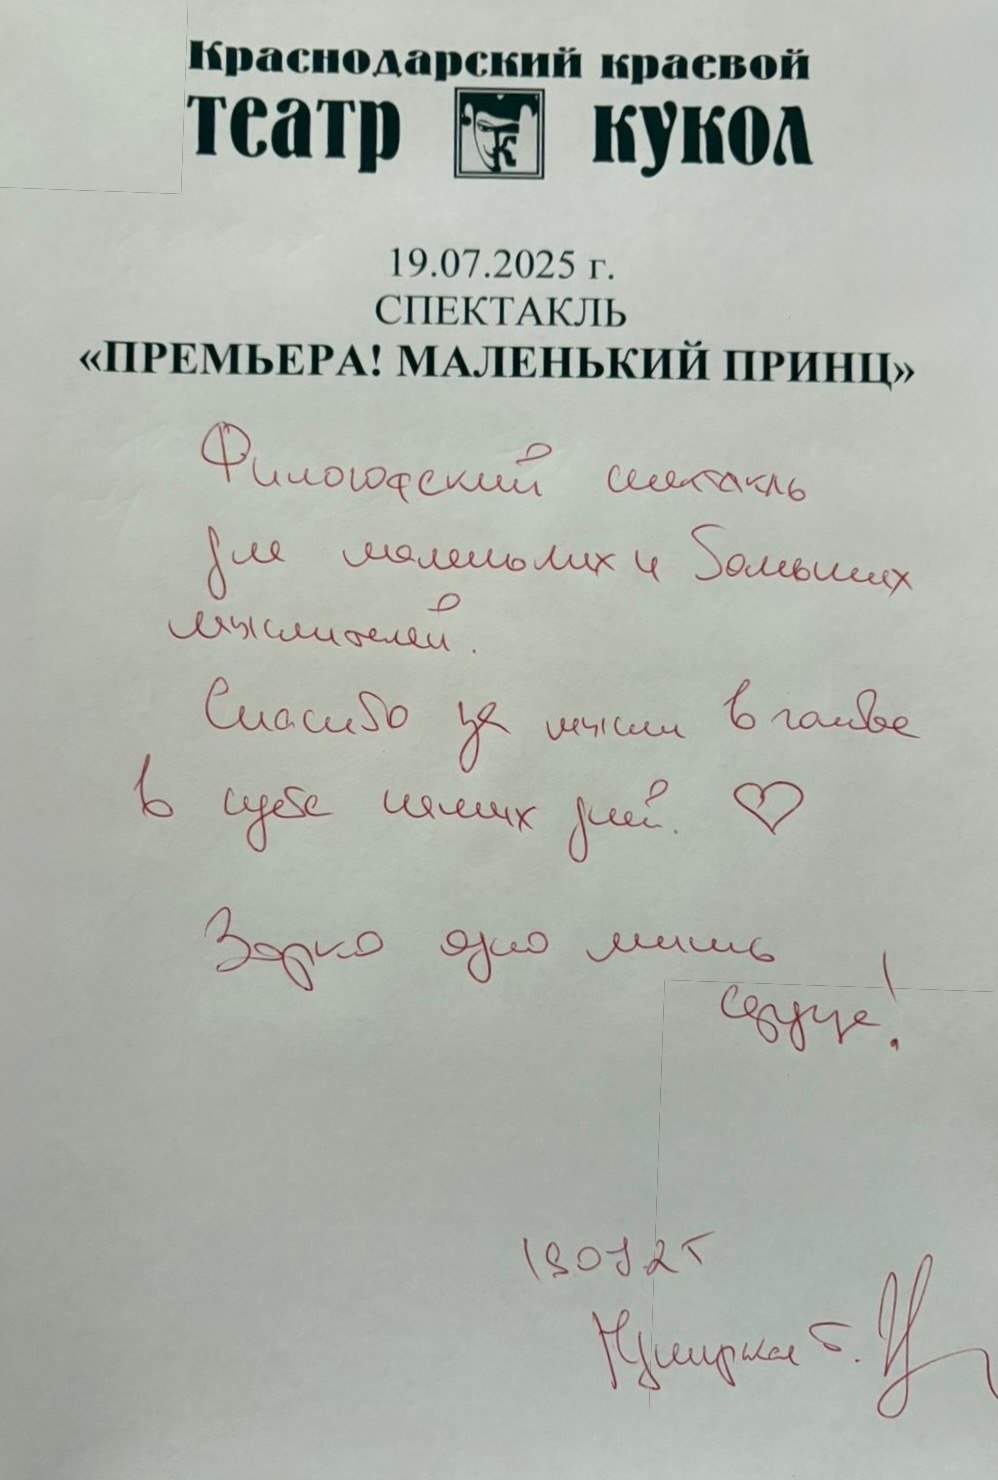 Краснодарский краевой
театр кукол
19.07.2025 г.
СПЕКТАКЛЬ
«ПРЕМЬЕРА! МАЛЕНЬКИЙ ПРИНЦ»
Философский спектакль
для маленьких и больших
мыслителей.
Спасибо за мысли в голове
в суете наших дней. ♡
Зорко одно лишь
сердце!
190725